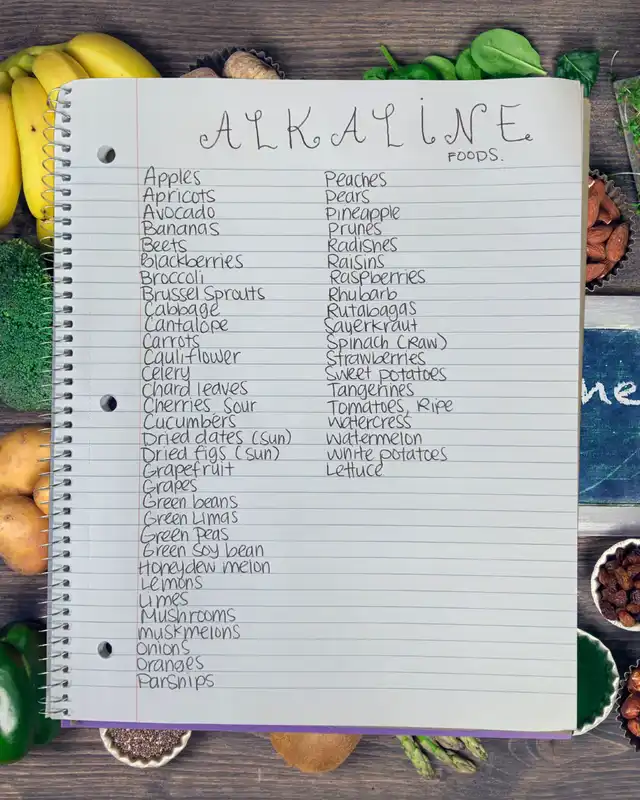 ALKALINE
FOODS.
Apples
Apricots
Avocado
Bananas
Beets
Blackberries
Broccoli
Brussel Sprouts
Cabbage
Cantalope
Carrots
Cauliflower
Celery
Chard leaves
Cherries, Sour
Cucumbers
Dried dates (sun)
Dried figs (sun)
Grapefruit
Grapes
Green beans
Green Limas
Green Peas
Green Soy bean
Honeydew melon
Lemons
Limes
Mushrooms
muskmelons
Onions
Oranges
Parsnips
Peaches
Pears
Pineapple
Prunes
Radishes
Raisins
Raspberries
Rhubarb
Rutabagas
Sayerkraut
Spinach (Raw)
Strawberries
Sweet potatoes
Tangerines
Tomatoes, Ripe
Watercress
Watermelon
White potatoes
Lettuce
ne